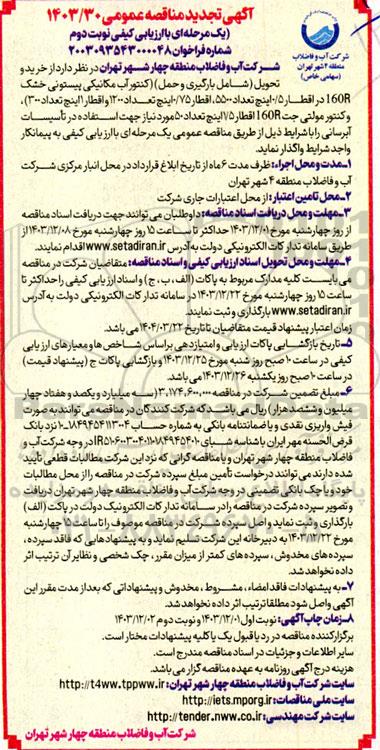 آگهی تجدید مناقصه عمومی ۱۴۰۳/۳۰
(یک مرحله‌ای با ارزیابی کیفی نوبت دوم
شماره فراخوان ۲۰۰۳۰۹۳۵۴۳۰۰۰۰۴۸
شرکت آب و فاضلاب
منطقه ۴ شهر تهران
(سهامی خاص)
شرکت آب و فاضلاب منطقه چهار شهر تهران در نظر دارد از خرید و
تحویل (شامل بارگیری و حمل) (کنتور آب مکانیکی پیستونی خشک
160R در اقطار ۰/۵ اینچ تعداد ۵۵۰۰، اقطار ۰/۷۵ اینچ تعداد ۱۲۰۰ و اقطار ۱ اینچ تعداد ۳۰۰)،
و کنتور مولتی جت 160R اقطار ۱/۵ اینچ تعداد ۵۰ مورد نیاز جهت استفاده در تأسیسات
آبرسانی را با شرایط ذیل از طریق مناقصه عمومی یک مرحله‌ای با ارزیابی کیفی به پیمانکار
واجد شرایط واگذار نماید.
۱-مدت و محل اجراء: ظرف مدت ۶ ماه از تاریخ ابلاغ قرارداد در محل انبار مرکزی شرکت
آب و فاضلاب منطقه ۴ شهر تهران
۲-محل تامین اعتبار: از محل اعتبارات جاری شرکت
۳-مهلت و محل دریافت اسناد مناقصه: داوطلبان می‌توانند جهت دریافت اسناد مناقصه
از روز چهارشنبه مورخ ۱۴۰۳/۱۲/۰۱ حداکثر تا ساعت ۱۵ روز چهارشنبه مورخ ۱۴۰۳/۱۲/۰۸ از
طریق سامانه تدارکات الکترونیکی دولت به آدرس www.setadiran.ir اقدام نمایند.
۴-مهلت و محل تحویل اسناد ارزیابی کیفی و اسناد مناقصه: متقاضیان شرکت در مناقصه
می بایست کلیه مدارک مربوط به پاکات (الف ، ب ، ج) و اسناد ارزیابی کیفی را حداکثر تا
ساعت ۱۵ روز چهارشنبه مورخ ۱۴۰۳/۱۲/۲۲ در سامانه تدارکات الکترونیکی دولت به آدرس
www.setadiran.ir بارگذاری و ثبت نمایند.
زمان اعتبار پیشنهاد قیمت متقاضیان تا تاریخ ۱۴۰۴/۰۳/۲۲ می باشد.
۵-تاریخ بازگشایی پاکات ارزیابی و امتیازدهی بر اساس شاخص ها و معیارهای ارزیابی
کیفی در ساعت ۱۰ صبح روز شنبه مورخ ۱۴۰۳/۱۲/۲۵ و بازگشایی پاکات ج (پیشنهاد قیمت)
در ساعت ۱۰ صبح روز یکشنبه ۱۴۰۳/۱۲/۲۶ می باشد.
۶-مبلغ تضمین شرکت در مناقصه ۳,۱۷۴,۶۰۰,۰۰۰ (سه میلیارد و یکصد و هفتاد چهار
میلیون و ششصد هزار) ریال می باشد که شرکت کنندگان در مناقصه می توانند به صورت
فیش واریزی نقدی و یا ضمانتنامه بانکی به شماره حساب ۱۰-۸۱۴۹۴۵۴۱۱۳۰۰۴ نزد بانک
قرض الحسنه مهر ایران با شناسه شبای در وجه شرکت آب و
فاضلاب منطقه چهار شهر تهران و یا مناقصه گرانی که نزد این شرکت مطالبات قطعی تأیید
شده دارند می توانند درخواست تأمین مبلغ سپرده شرکت در مناقصه را از محل مطالبات
خود و یا چک بانکی تضمینی در وجه شرکت آب و فاضلاب منطقه چهار شهر تهران دریافت
و تصویر سپرده شرکت در مناقصه را در سامانه تدارکات الکترونیک دولت در پاکت (الف)
بارگذاری و ثبت نماید و اصل سپرده شرکت در مناقصه موصوف را تا ساعت ۱۰ چهارشنبه
مورخ ۱۴۰۳/۱۲/۲۲ به دبیرخانه این شرکت تسلیم نماید و به پیشنهادهایی که فاقد سپرده ،
سپرده های مخدوش ، سپرده های کمتر از میزان مقرر ، چک شخصی و نظایر آن ترتیب اثر
داده نخواهد شد.
۷-به پیشنهادات فاقد امضاء ، مشروط ، مخدوش و پیشنهاداتی که بعد از مدت مقرر این
آگهی واصل شود مطلقا ترتیب اثر داده نخواهد شد.
۸-زمان چاپ آگهی: نوبت اول ۱۴۰۳/۱۲/۰۱ و نوبت دوم ۱۴۰۳/۱۲/۰۲
برگزار کننده مناقصه در رد یا قبول یک یا کلیه پیشنهادات مختار است.
سایر اطلاعات و جزئیات در اسناد مناقصه مندرج است.
هزینه درج آگهی روزنامه به عهده مناقصه گزار می باشد.
سایت شرکت آب و فاضلاب منطقه چهار شهر تهران : http://t4ww.tppww.ir
سایت ملی مناقصات: http://iets.mporg.ir
سایت شرکت مهندسی: http://tender.nww.co.ir
شرکت آب و فاضلاب منطقه چهار شهر تهران